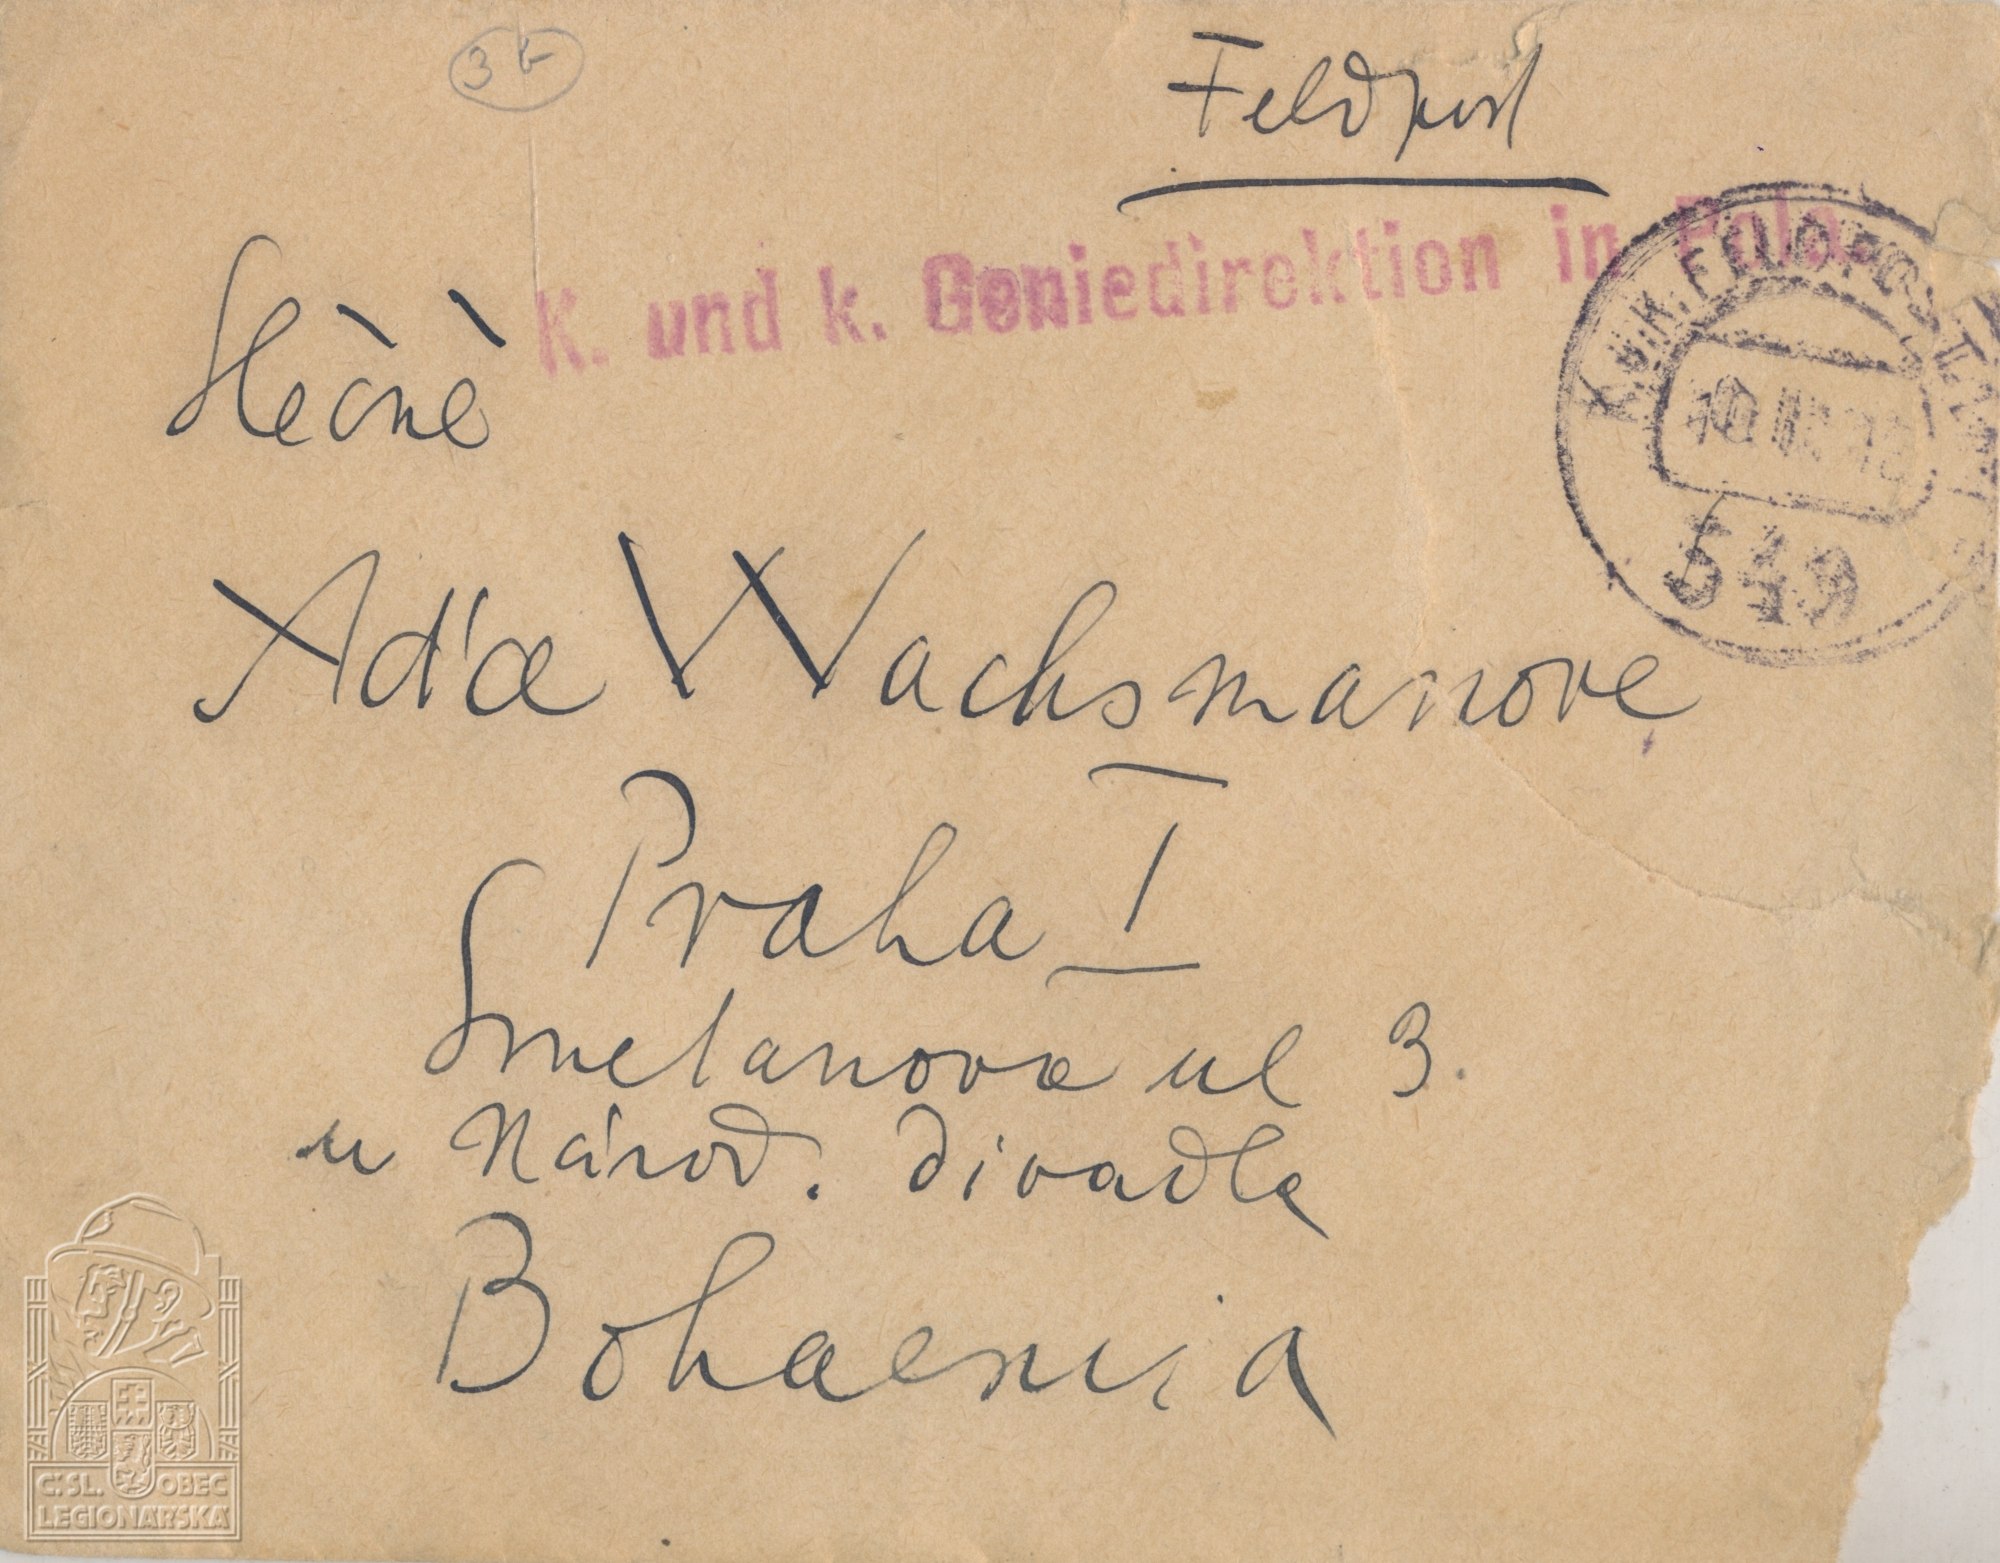 3 k
Feldpost
K. und k. Geniedirektion in Pola.
K.u.K. FELDPOST
549
Slečně
Ad'a Wachsmanove
Praha I
Smetanova ul 3.
u Národ. divadla
Bohaemia
Č.SL. OBEC
LEGIONÁŘSKÁ